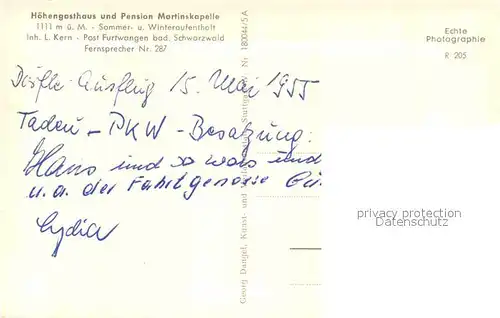 Höhengasthaus und Pension Martinskapelle
1111 m ü. M. - Sommer- u. Winteraufenthalt
Inh. L. Kern - Post Furtwangen bad. Schwarzwald
Fernsprecher Nr. 287
Echte
Photographie
R 205
Ausflug 15. Mai 1955
PKW - Besatzung:
Hans und so was und
u. a. der Fahrtgenosse
Lydia
Georg Dangel, Kunst- und Stuttgart Nr 180044/5 A
privacy protection
Datenschutz